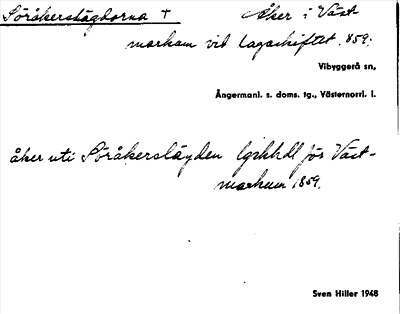 Söråkerslägdorna + Åker i Väst-
markam vid lagaskiftet 1859.
Vibyggerå sn,
Ångermanl. s. doms. tg., Västernorrl. l.
åker uti Söråkerslägden lgskhdl för Väst-
markum 1859.
Sven Hiller 1948